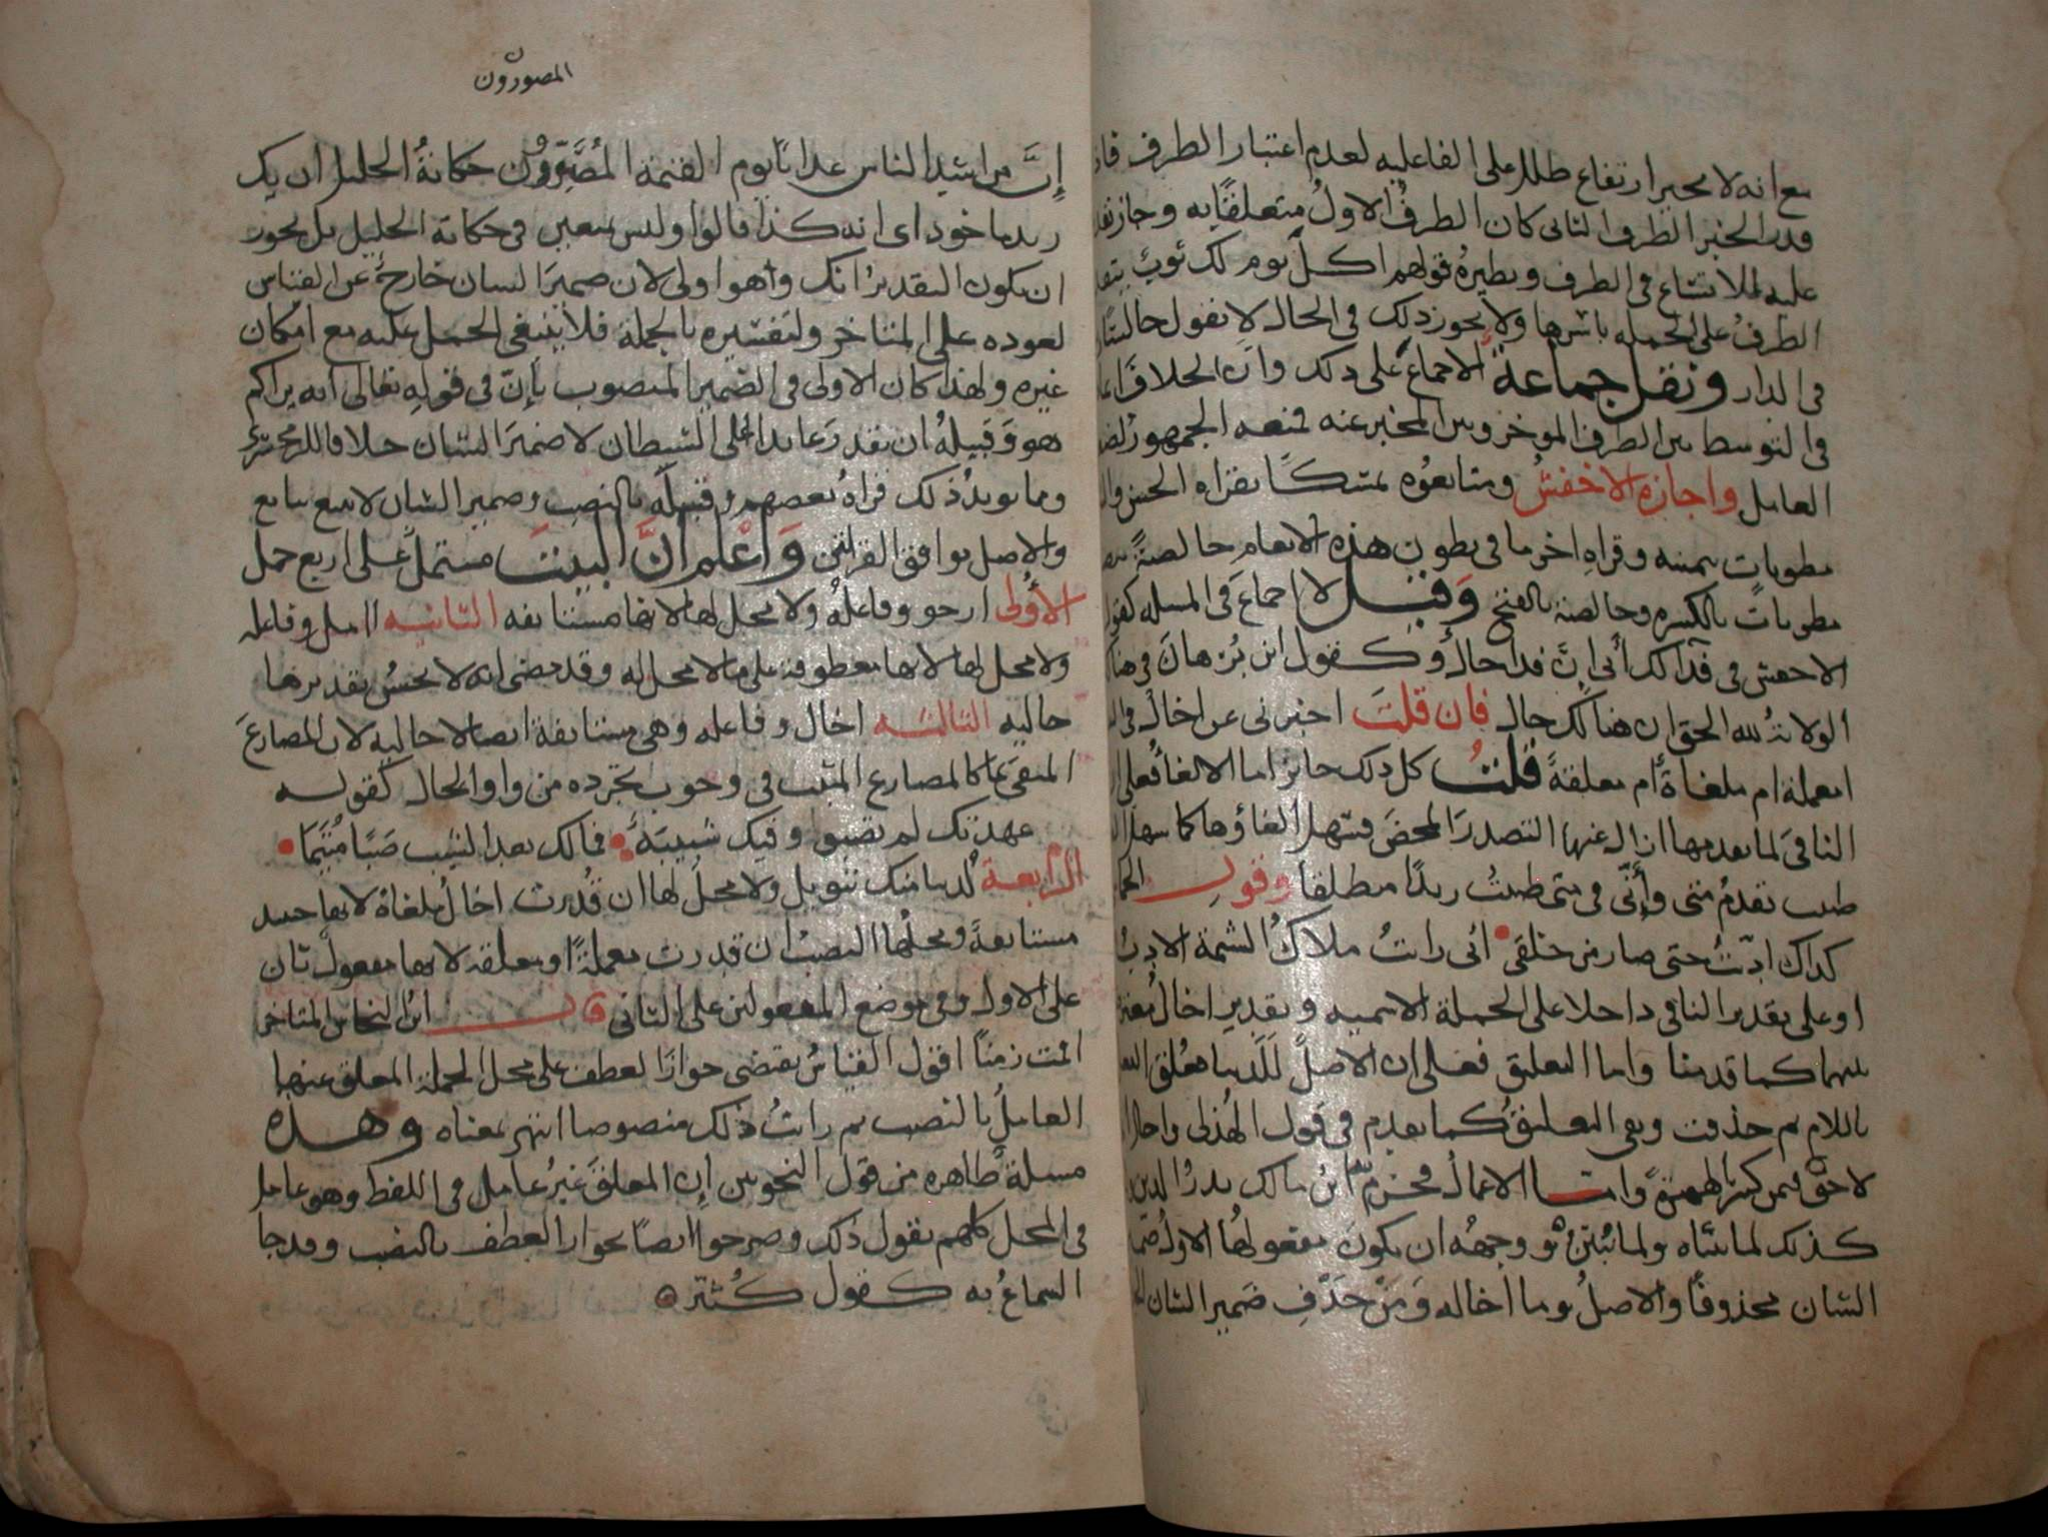 مع انه لا يجيز ارتفاع طلل على الفاعليه لعدم اعتبار الظرف
قدر الخبر الظرف الثانى كان الظرف الاول متعلقًا به وجاز
عليه للاتساع فى الظرف ونظيره قولهم اكل يوم لك ثوب
الظرف على الجمله باسرها ولا يجوز ذلك فى الحال لا تقول
فى الدار ونقل جماعة الاجماع على ذلك وان الخلاف
فى التوسط بين الظرف الموخر وبين المخبر عنه فمنعه الجمهور
العامل واجازه الاخفش ومتابعوه تمسكًا بقراه الحسن
مطويات بيمينه وقراه اخر ما فى بطون هذه الانعام خالصةً
مطوياتٍ بالكسره وخالصة بالفتح وقيل لا اجماع فى المسله
الاخفش فى فدا لك أبى إنّ فدا حال وكقول ابن برهان فى
الولايةُ لله الحق ان هنالك حال فان قلتَ اخبرنى عن اخال
امعملة ام ملغاة أم معلقة قلتُ كل ذلك جائز اما الالغا فعلى
النافى لما تقدمها ازال عنها التصدر المحض فسهل الغاؤها كما سهل
ظننت تقدمُ متى وإنّى فى متى ظننتُ زيدًا منطلقا وقول
كداك ادّبتُ حتى صار من خلقى • انى رايتُ ملاكُ الشيمة الادبُ
او على تقدير النافى داخلا على الجملة الاسميه وتقدير اخال
بينهما كما قدمنا واما التعليق فعلى ان الاصل لَلَدينا فعُلق
باللام ثم حذفت وبقى التعليقُ كما تقدم فى قول الهذلى
لاحق فيمن كسر الهمزة واما الاعمال فجزم به ابن مالك بدر الدين
كذلك لما بيّناه ولما نُبيّن فى توجيهه ان يكون مفعولها الاول
الشان محذوفًا والاصلُ وما اخاله ومن حذف ضمير الشان
المصورون
إنَّ من اشد الناس عذابًا يوم القيمة المُصَوِّرُون حكاية الخليل ان بك
زيد ماخوذ اى انه كذا قالوا وليس بمتعين فى حكاية الخليل بل يجوز
ان يكون التقديرُ انك وهو اولى لان ضميرَ الشان خارج عن القياس
لعوده على المتاخر ولتفسيره بالجملة فلا ينبغى الحمل عليه مع امكان
غيره ولهذا كان الاولى فى الضمير المنصوب بإنّ فى قوله تعالى انه يراكم
هو وقبيلهُ ان يقدر عايدا على الشيطان لا ضميرَ الشان خلافا للزمخشرى
ومما يويدُ ذلك قراهُ بعضهم وقبيلَه بالنصب وضمير الشان لا يتبع بتابع
والاصل توافق القراتين وَاعْلم انَّ البيتَ مشتملٌ على اربع جمل
الأولى ارجو وفاعلهُ ولا محل لها لانها مستانفه الثانيه امل وفاعله
ولا محل لها لانها معطوفة على ما لا محل له وقد مضى انه لا يحسُن تقديرها
حاليه الثالثه اخال وفاعله وهى مستانفة ايضا لا حاليه لان المضارعَ
المنفى بما كالمضارع المثبت فى وجوب تجرّده من واو الحال كقوله
عهدتك لم تصبو وفيك شبيبة • فما لك بعد الشيب صبًّا مُتيَّما •
الرابعة لدينا منك تنويل ولا محلَّ لها ان قُدرت اخال ملغاة لانها حينيد
مستانفةً ومحلُّها النصبُ ان قدرت معملةً او معلقه لانها مفعول ثان
على الاول وفى موضع المفعولين على الثانى قال ابن النحاس المتاخر
اقمت زمنًا اقول القياسُ يقتضى جوازَ العطف على محل الجملة المعلق عنها
العاملُ بالنصب ثم رايتُ ذلك منصوصا انتهى معناه وهذه
مسلةٌ ظاهره من قول النحويين إن المعلقَ غيرُ عامل فى اللفظ وهو عامل
فى المحل كلهم يقول ذلك وصرحوا ايضًا بجواز العطف بالنصب وقد جا
السماعُ به كقول كُثيّر